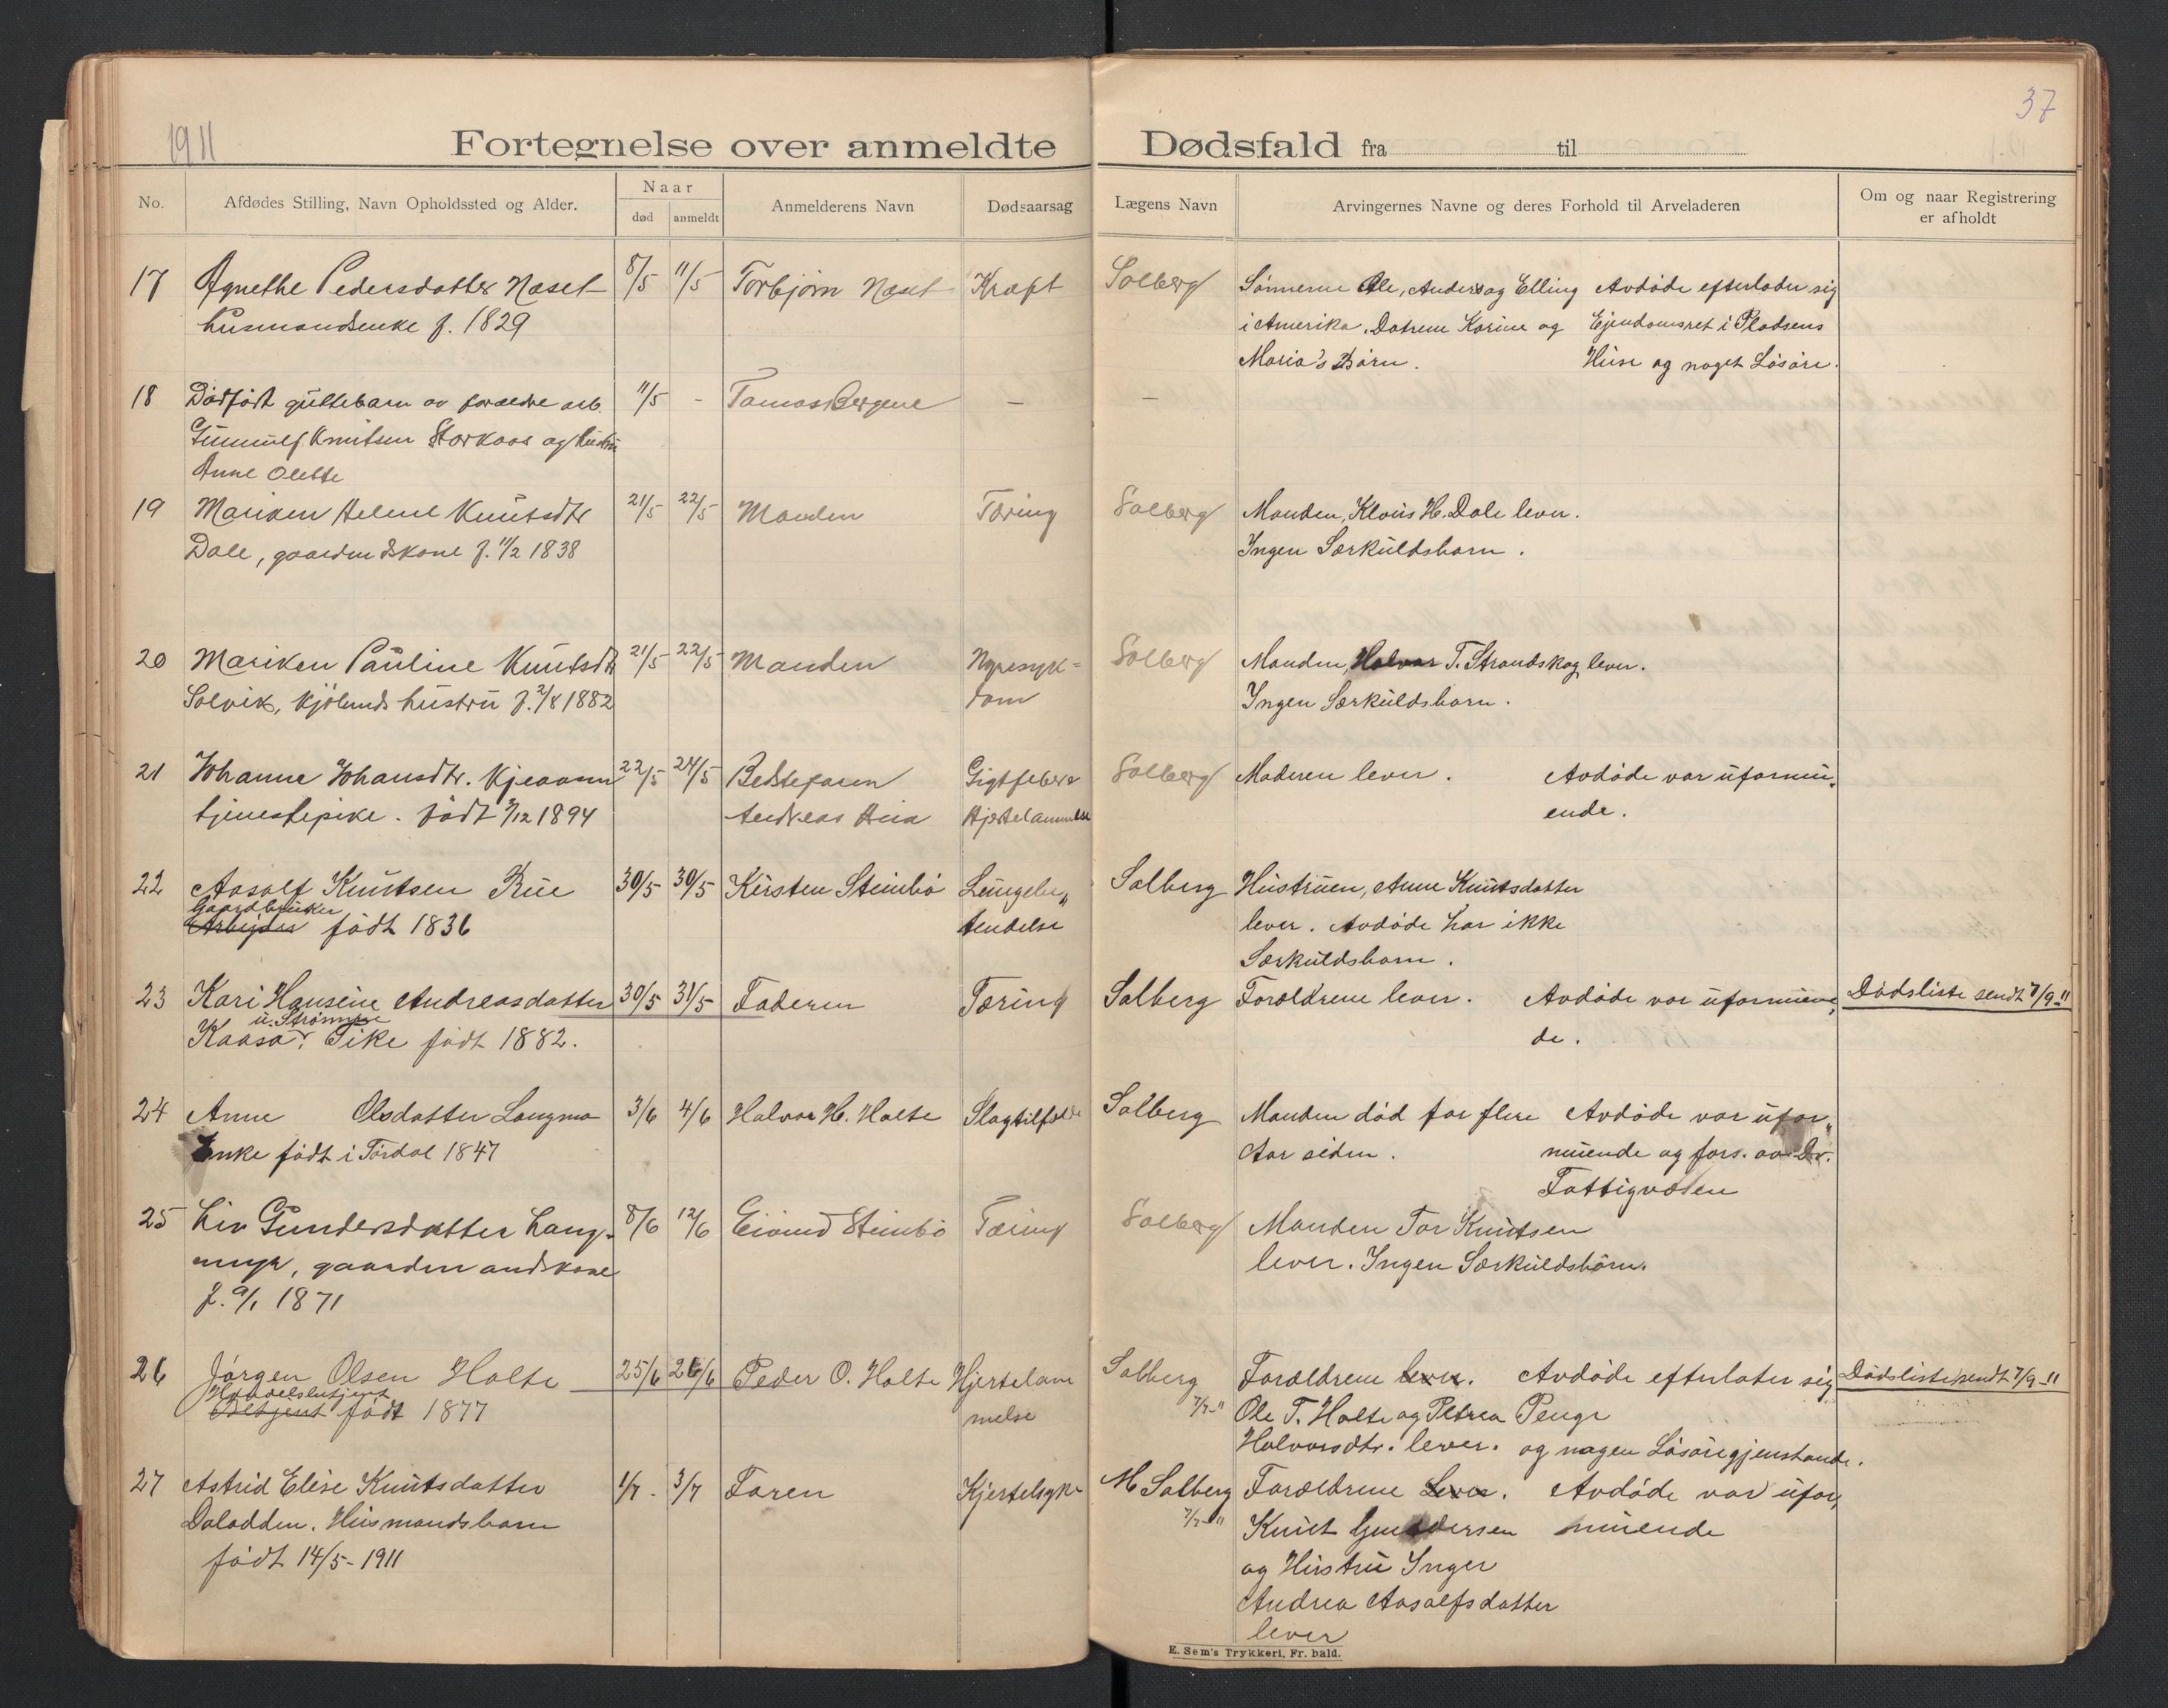 1911
37
Fortegnelse over anmeldte Dødsfald fra til
No.
Afdødes Stilling, Navn Opholdssted og Alder.
Naar
død anmeldt
Anmelderens Navn
Dødsaarsag
Lægens Navn
Arvingernes Navne og deres Forhold til Arveladeren
Om og naar Registrering
er afholdt
17 Agnethe Pedersdatter Næset 8/5 11/5 Torbjørn Næset Kræft Solberg Sønnerne Ole, Anders og Elling Avdøde efterlader sig
husmandsenke f. 1829 i Amerika. Døtrene Karine og Ejendomsret i Pladsens
Maria's Børn. Huse og noget Løsøre.
18 Dødfødt guttebarn av forældre arb. 11/5 - Tomas Bergene - -
Gunnulf Knutsen Storkaas og hustru
Anne Olette
19 Mariken Helene Knutsdtr 21/5 22/5 Manden Tæring Solberg Manden, Klaus H. Dale lever.
Dale, gaardmandskone f. 11/2 1838 Ingen Særkuldsbarn.
20 Mariken Pauline Knutsdtr 21/5 22/5 Manden Nyresyk= Solberg Manden, Halvor T. Strandskog lever.
Solvik, hustru f. 2/8 1882 dom Ingen Særkuldsbarn.
21 Johanne Johansdtr. 22/5 24/5 Bedstefaren Gigtfeber Solberg Moderen lever. Avdøde var uformu„
tjenestepike. født 1894 Andreas Hjertelammelse ende.
22 Aasolf Knutsen Rue 30/5 30/5 Kirsten Steinbø Lungebe„ Solberg Hustruen, Anne Knutsdatter
Gaardbruker
Arbeider født 1836 tendelse lever. Avdøde har ikke
Særkuldsbarn.
23 Kari Hansine Andreasdatter 30/5 31/5 Faderen Tæring Solberg Forældrene lever. Avdøde var uformuen„ Dødsliste sendt 7/9-11
u. Strømme
Kaasa. Pike født 1882. de.
24 Anne Olsdatter Langmo 3/6 4/6 Halvor H. Holte Slagtilfælde Solberg Manden død for flere Avdøde var ufor„
Enke født i Tørdal 1847 Aar siden. muende og fors. av Dr.
Fattigvæsen
25 Liv Gundersdatter Lang- 8/6 12/6 Eivind Steinbø Tæring Solberg Manden Tor Knutsen
myr, gaardmandskone lever. Ingen Særkuldsbørn.
f. 9/1 1871
26 Jørgen Olsen Holte 25/6 26/6 Peder O. Holte Hjertelam Solberg Forældrene lever. Avdøde efterlater sig Dødsliste sendt 7/9-11
Handelsbetjent
Betjent født 1877 melse 7/7-11 Ole T. Holte og Petrea Penge
Halvorsdtr. lever. og nogen Løsøregjenstande.
27 Astrid Elise Knutsdatter 1/7. 3/7 Faren Kjertelsyk- M Solberg Forældrene lever. Avdøde var ufor„
Dalodden. Husmandsbarn 7/7-11 Knut Gundersen muende
født 14/5-1911 og Hustru Inger
Andrea Aasolfsdatter
lever
E. Sem's Trykkeri, Fr. hald.